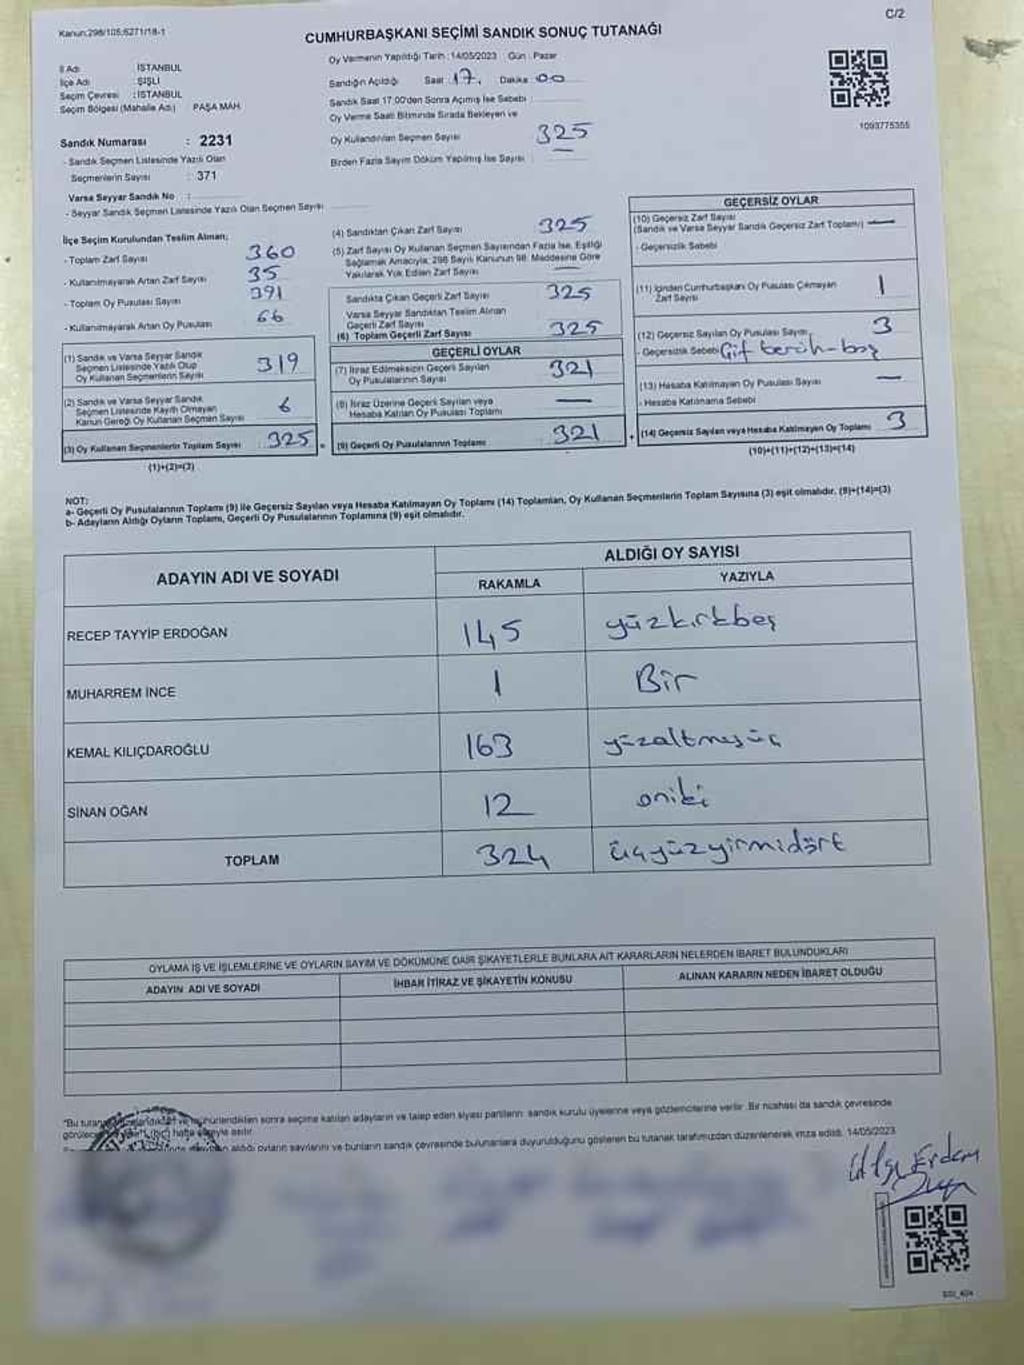 C/2
Kanun:298/105;6271/18-1
CUMHURBAŞKANI SEÇİMİ SANDIK SONUÇ TUTANAĞI
İl Adı : İSTANBUL
İlçe Adı : ŞİŞLİ
Seçim Çevresi : İSTANBUL
Seçim Bölgesi (Mahalle Adı) PAŞA MAH.
Sandık Numarası : 2231
- Sandık Seçmen Listesinde Yazılı Olan
Seçmenlerin Sayısı : 371
Varsa Seyyar Sandık No :
- Seyyar Sandık Seçmen Listesinde Yazılı Olan Seçmen Sayısı
Oy Vermenin Yapıldığı Tarih : 14/05/2023 Gün : Pazar
Sandığın Açıldığı Saat : 17. Dakika : 00
Sandık Saat 17.00'den Sonra Açılmış İse Sebebi :
Oy Verme Saati Bitiminde Sırada Bekleyen ve
Oy Kullandırılan Seçmen Sayısı : 325
Birden Fazla Sayım Döküm Yapılmış İse Sayısı :
1093775355
İlçe Seçim Kurulundan Teslim Alınan;
- Toplam Zarf Sayısı 360
- Kullanılmayarak Artan Zarf Sayısı 35
- Toplam Oy Pusulası Sayısı 391
- Kullanılmayarak Artan Oy Pusulası 66
(1) Sandık ve Varsa Seyyar Sandık
Seçmen Listesinde Yazılı Olup
Oy Kullanan Seçmenlerin Sayısı 319
(2) Sandık ve Varsa Seyyar Sandık
Seçmen Listesinde Kayıtlı Olmayan
Kanun Gereği Oy Kullanan Seçmen Sayısı 6
(3) Oy Kullanan Seçmenlerin Toplam Sayısı 325 =
(1)+(2)=(3)
(4) Sandıktan Çıkan Zarf Sayısı 325
(5) Zarf Sayısı Oy Kullanan Seçmen Sayısından Fazla İse, Eşitliği
Sağlamak Amacıyla; 298 Sayılı Kanunun 98. Maddesine Göre
Yakılarak Yok Edilen Zarf Sayısı —
Sandıkta Çıkan Geçerli Zarf Sayısı 325
Varsa Seyyar Sandıktan Teslim Alınan
Geçerli Zarf Sayısı
(6) Toplam Geçerli Zarf Sayısı 325
GEÇERLİ OYLAR
(7) İtiraz Edilmeksizin Geçerli Sayılan
Oy Pusulalarının Sayısı 321
(8) İtiraz Üzerine Geçerli Sayılan veya
Hesaba Katılan Oy Pusulası Toplamı —
(9) Geçerli Oy Pusulalarının Toplamı 321 +
GEÇERSİZ OYLAR
(10) Geçersiz Zarf Sayısı
(Sandık ve Varsa Seyyar Sandık Geçersiz Zarf Toplamı) —
- Geçersizlik Sebebi
(11) İçinden Cumhurbaşkanı Oy Pusulası Çıkmayan
Zarf Sayısı 1
(12) Geçersiz Sayılan Oy Pusulası Sayısı 3
- Geçersizlik Sebebi Çift tercih-boş
(13) Hesaba Katılmayan Oy Pusulası Sayısı —
- Hesaba Katılmama Sebebi
(14) Geçersiz Sayılan veya Hesaba Katılmayan Oy Toplamı 3
(10)+(11)+(12)+(13)=(14)
NOT:
a- Geçerli Oy Pusulalarının Toplamı (9) ile Geçersiz Sayılan veya Hesaba Katılmayan Oy Toplamı (14) Toplamları, Oy Kullanan Seçmenlerin Toplam Sayısına (3) eşit olmalıdır. (9)+(14)=(3)
b- Adayların Aldığı Oyların Toplamı, Geçerli Oy Pusulalarının Toplamına (9) eşit olmalıdır.
ADAYIN ADI VE SOYADI ALDIĞI OY SAYISI
RAKAMLA YAZIYLA
RECEP TAYYİP ERDOĞAN 145 yüzkırkbeş
MUHARREM İNCE 1 Bir
KEMAL KILIÇDAROĞLU 163 yüzaltmışüç
SİNAN OĞAN 12 oniki
TOPLAM 324 üçyüzyirmidört
OYLAMA İŞ VE İŞLEMLERİNE VE OYLARIN SAYIM VE DÖKÜMÜNE DAİR ŞİKAYETLERLE BUNLARA AİT KARARLARIN NELERDEN İBARET BULUNDUKLARI
ADAYIN ADI VE SOYADI İHBAR İTİRAZ VE ŞİKAYETİN KONUSU ALINAN KARARIN NEDEN İBARET OLDUĞU
sonra seçime katılan adayların ve talep eden siyasi partilerin sandık kurulu üyelerine veya gözlemcilerine verilir. Bir nüshası da sandık çevresinde
(bir) hafta süreyle asılır.
aldığı oyların sayılarını ve bunların sandık çevresinde bulunanlara duyurulduğunu gösteren bu tutanak tarafımızdan düzenlenerek imza edildi. 14/05/2023
Erdem